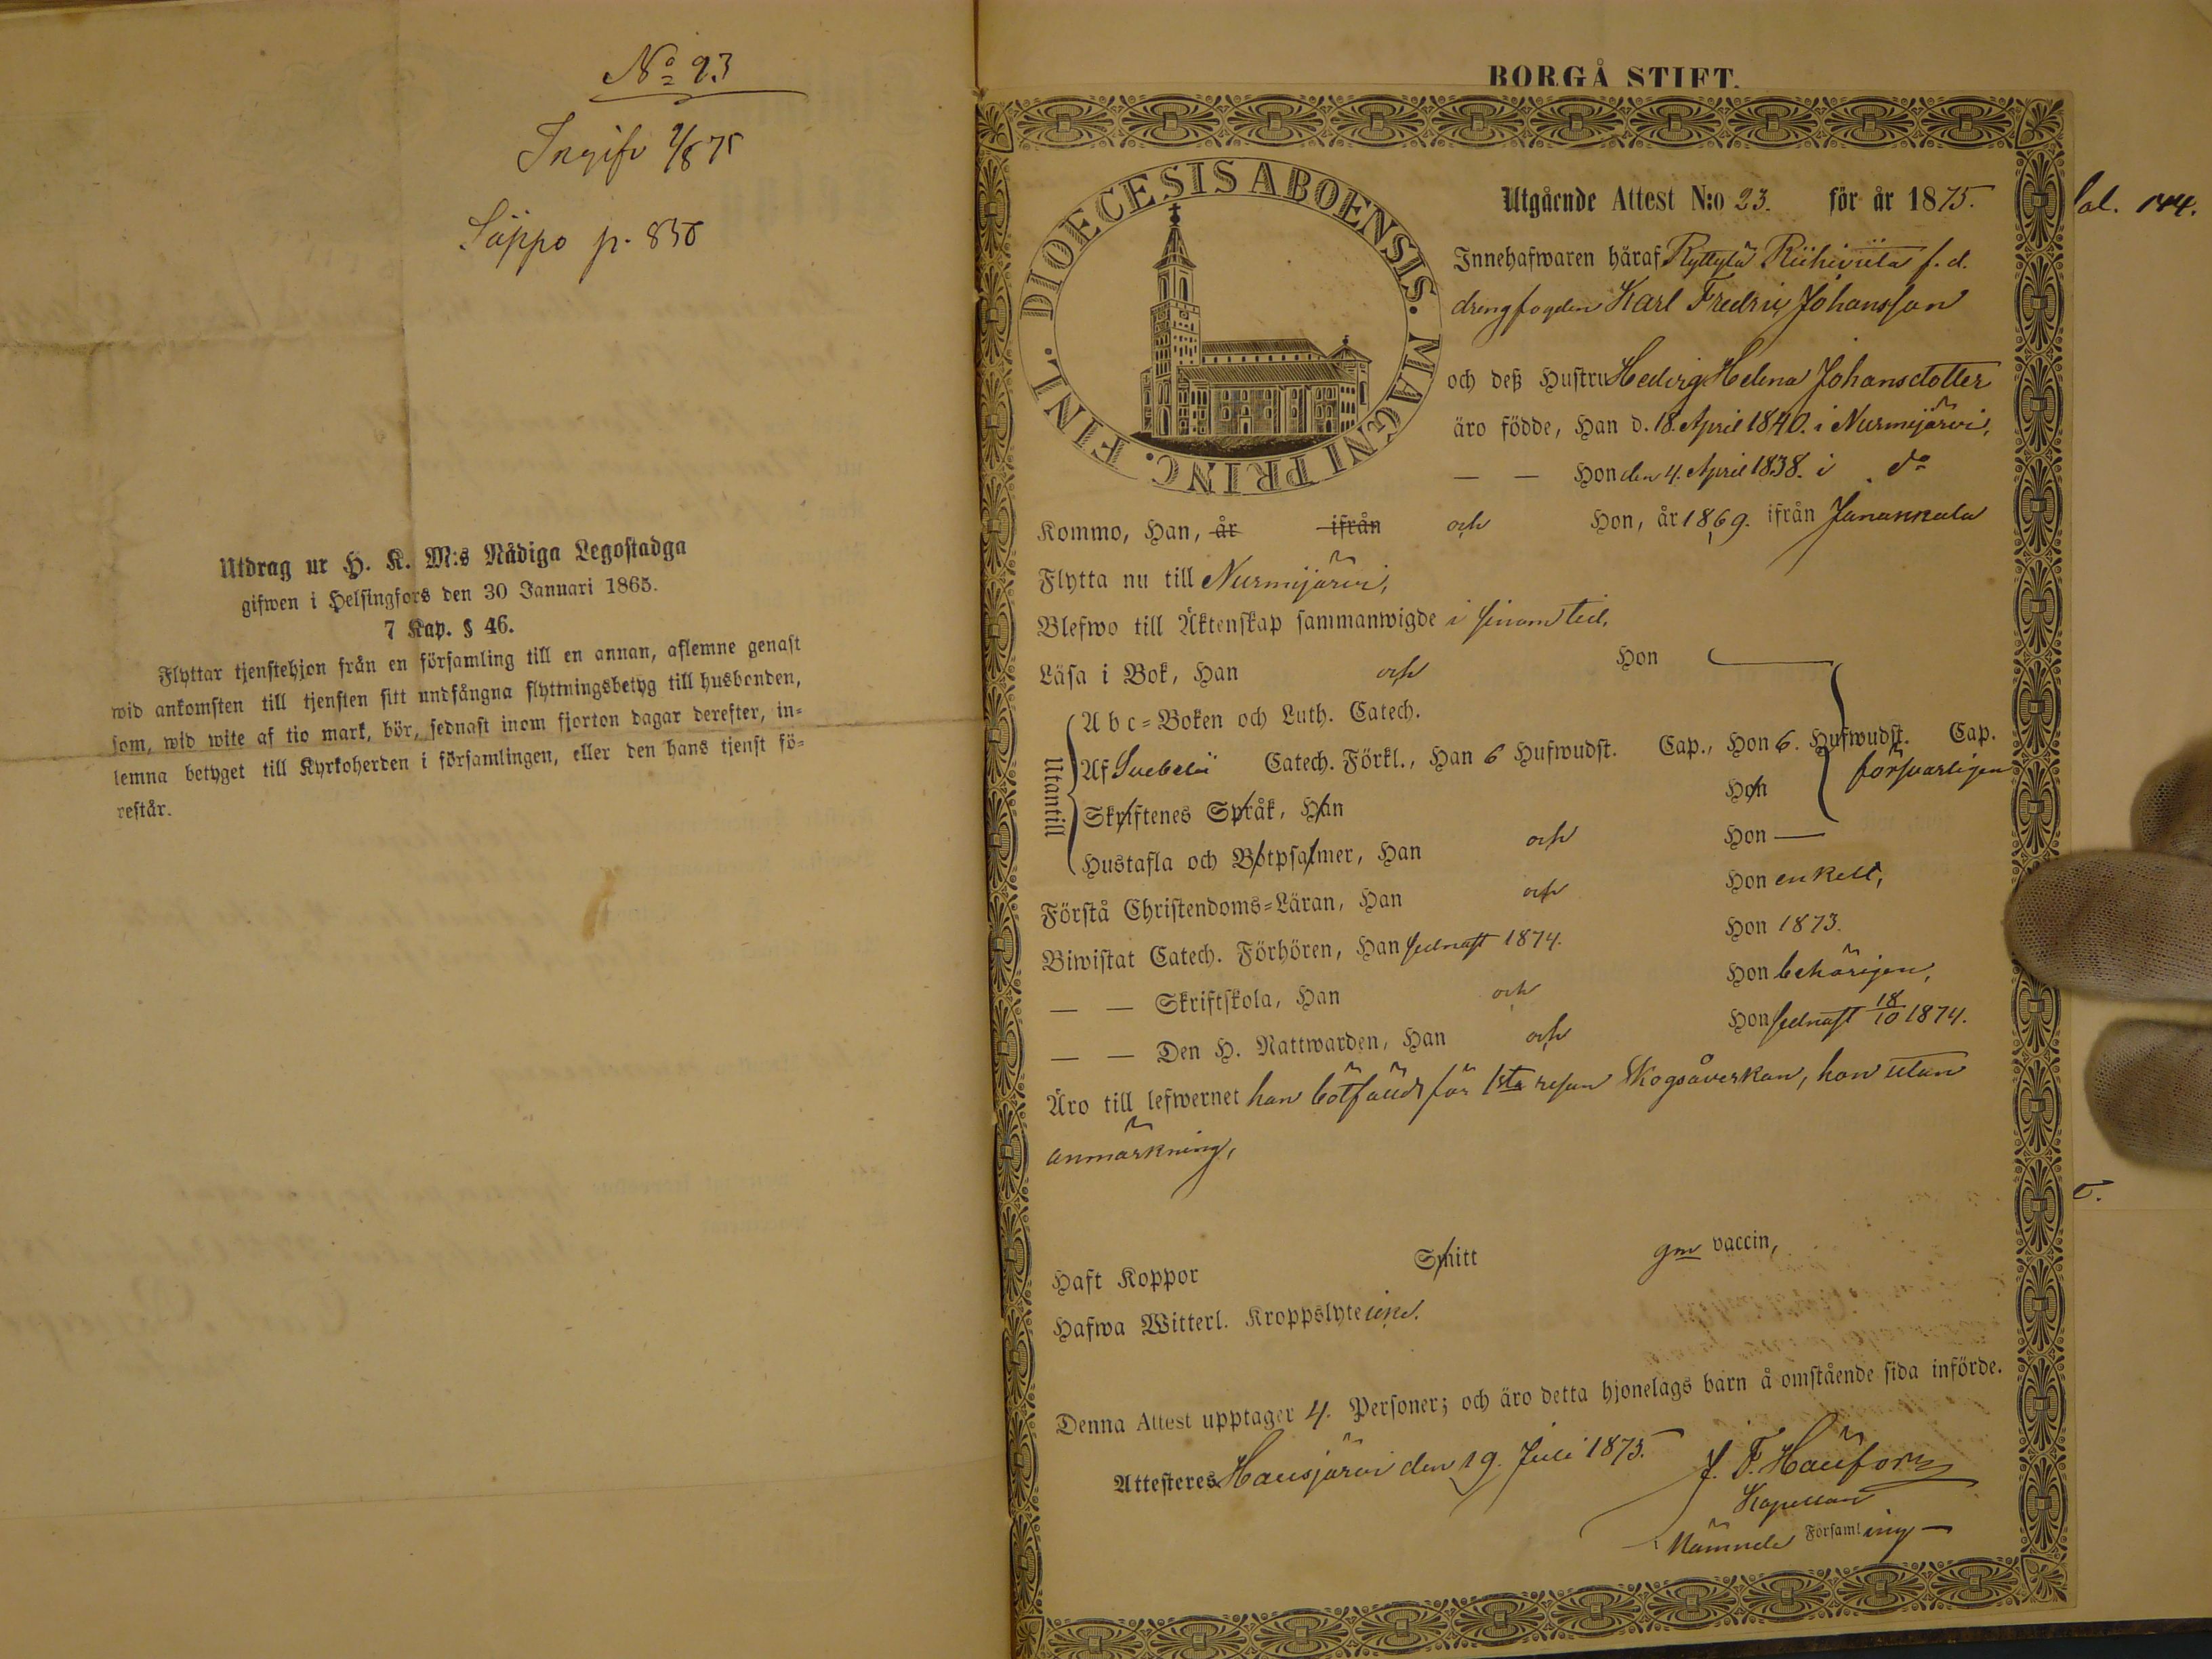 No 23
Ingifv 2/8 75
Säppo p. 850
Utdrag ur H. K. M:s Nådiga Legostadga
gifwen i Helsingfors den 30 Januari 1865.
7 Kap. § 46.
Flyttar tjenstehjon från en församling till en annan, aflemne genast
wid ankomsten till tjensten sitt undfångna flyttningsbetyg till husbonden,
som, wid wite af tio mark, bör, sednast inom fjorton dagar derefter, in-
lemna betyget till Kyrkoherden i församlingen, eller den hans tjenst fö-
restår.
BORGÅ STIFT.
DIOECESIS ABOENSIS. MAGNI PRINC. FINL.
Utgående Attest N:o 23. för år 1875.
Innehafwaren häraf Ryttylä Riihiviita f. d.
drengfogden Karl Fredric Johansson
och deß Hustru Hedvig Helena Johansdotter
äro födde, Han d. 18. April 1840. i Nurmijärvi,
— — Hon den 4. April 1838. i do
Kommo, Han, år ifrån och Hon, år 1869. ifrån Janakkala
Flytta nu till Nurmijärvi,
Blefwo till Äktenskap sammanwigde i sinom tid.
Läsa i Bok, Han och Hon
Utantill
Abc-Boken och Luth. Catech.
Af Svebelii Catech. Förkl., Han 6 Hufwudst. Cap., Hon 6. Hufwudst. Cap.
försvarligen
Skriftenes Språk, Han Hon
Hustafla och Botpsalmer, Han och Hon —
Förstå Christendoms-Läran, Han och Hon enkelt,
Biwistat Catech. Förhören, Han sednast 1874. Hon 1873.
— — Skriftskola, Han och Hon behörigen,
— — Den H. Nattwarden, Han och Hon sednast 18/10 1874.
Äro till lefwernet han bötfäld för 1sta resan Skogsåverkan, hon utan
anmärkning,
Haft Koppor Smitt gm vaccin,
Hafwa Witterl. Kroppslyte icke.
Denna Attest upptager 4. Personer; och äro detta hjonelags barn å omstående sida införde.
Attesteres Hausjärvi den 19. Juli 1875.
Kapellan
Nämnde Församling —